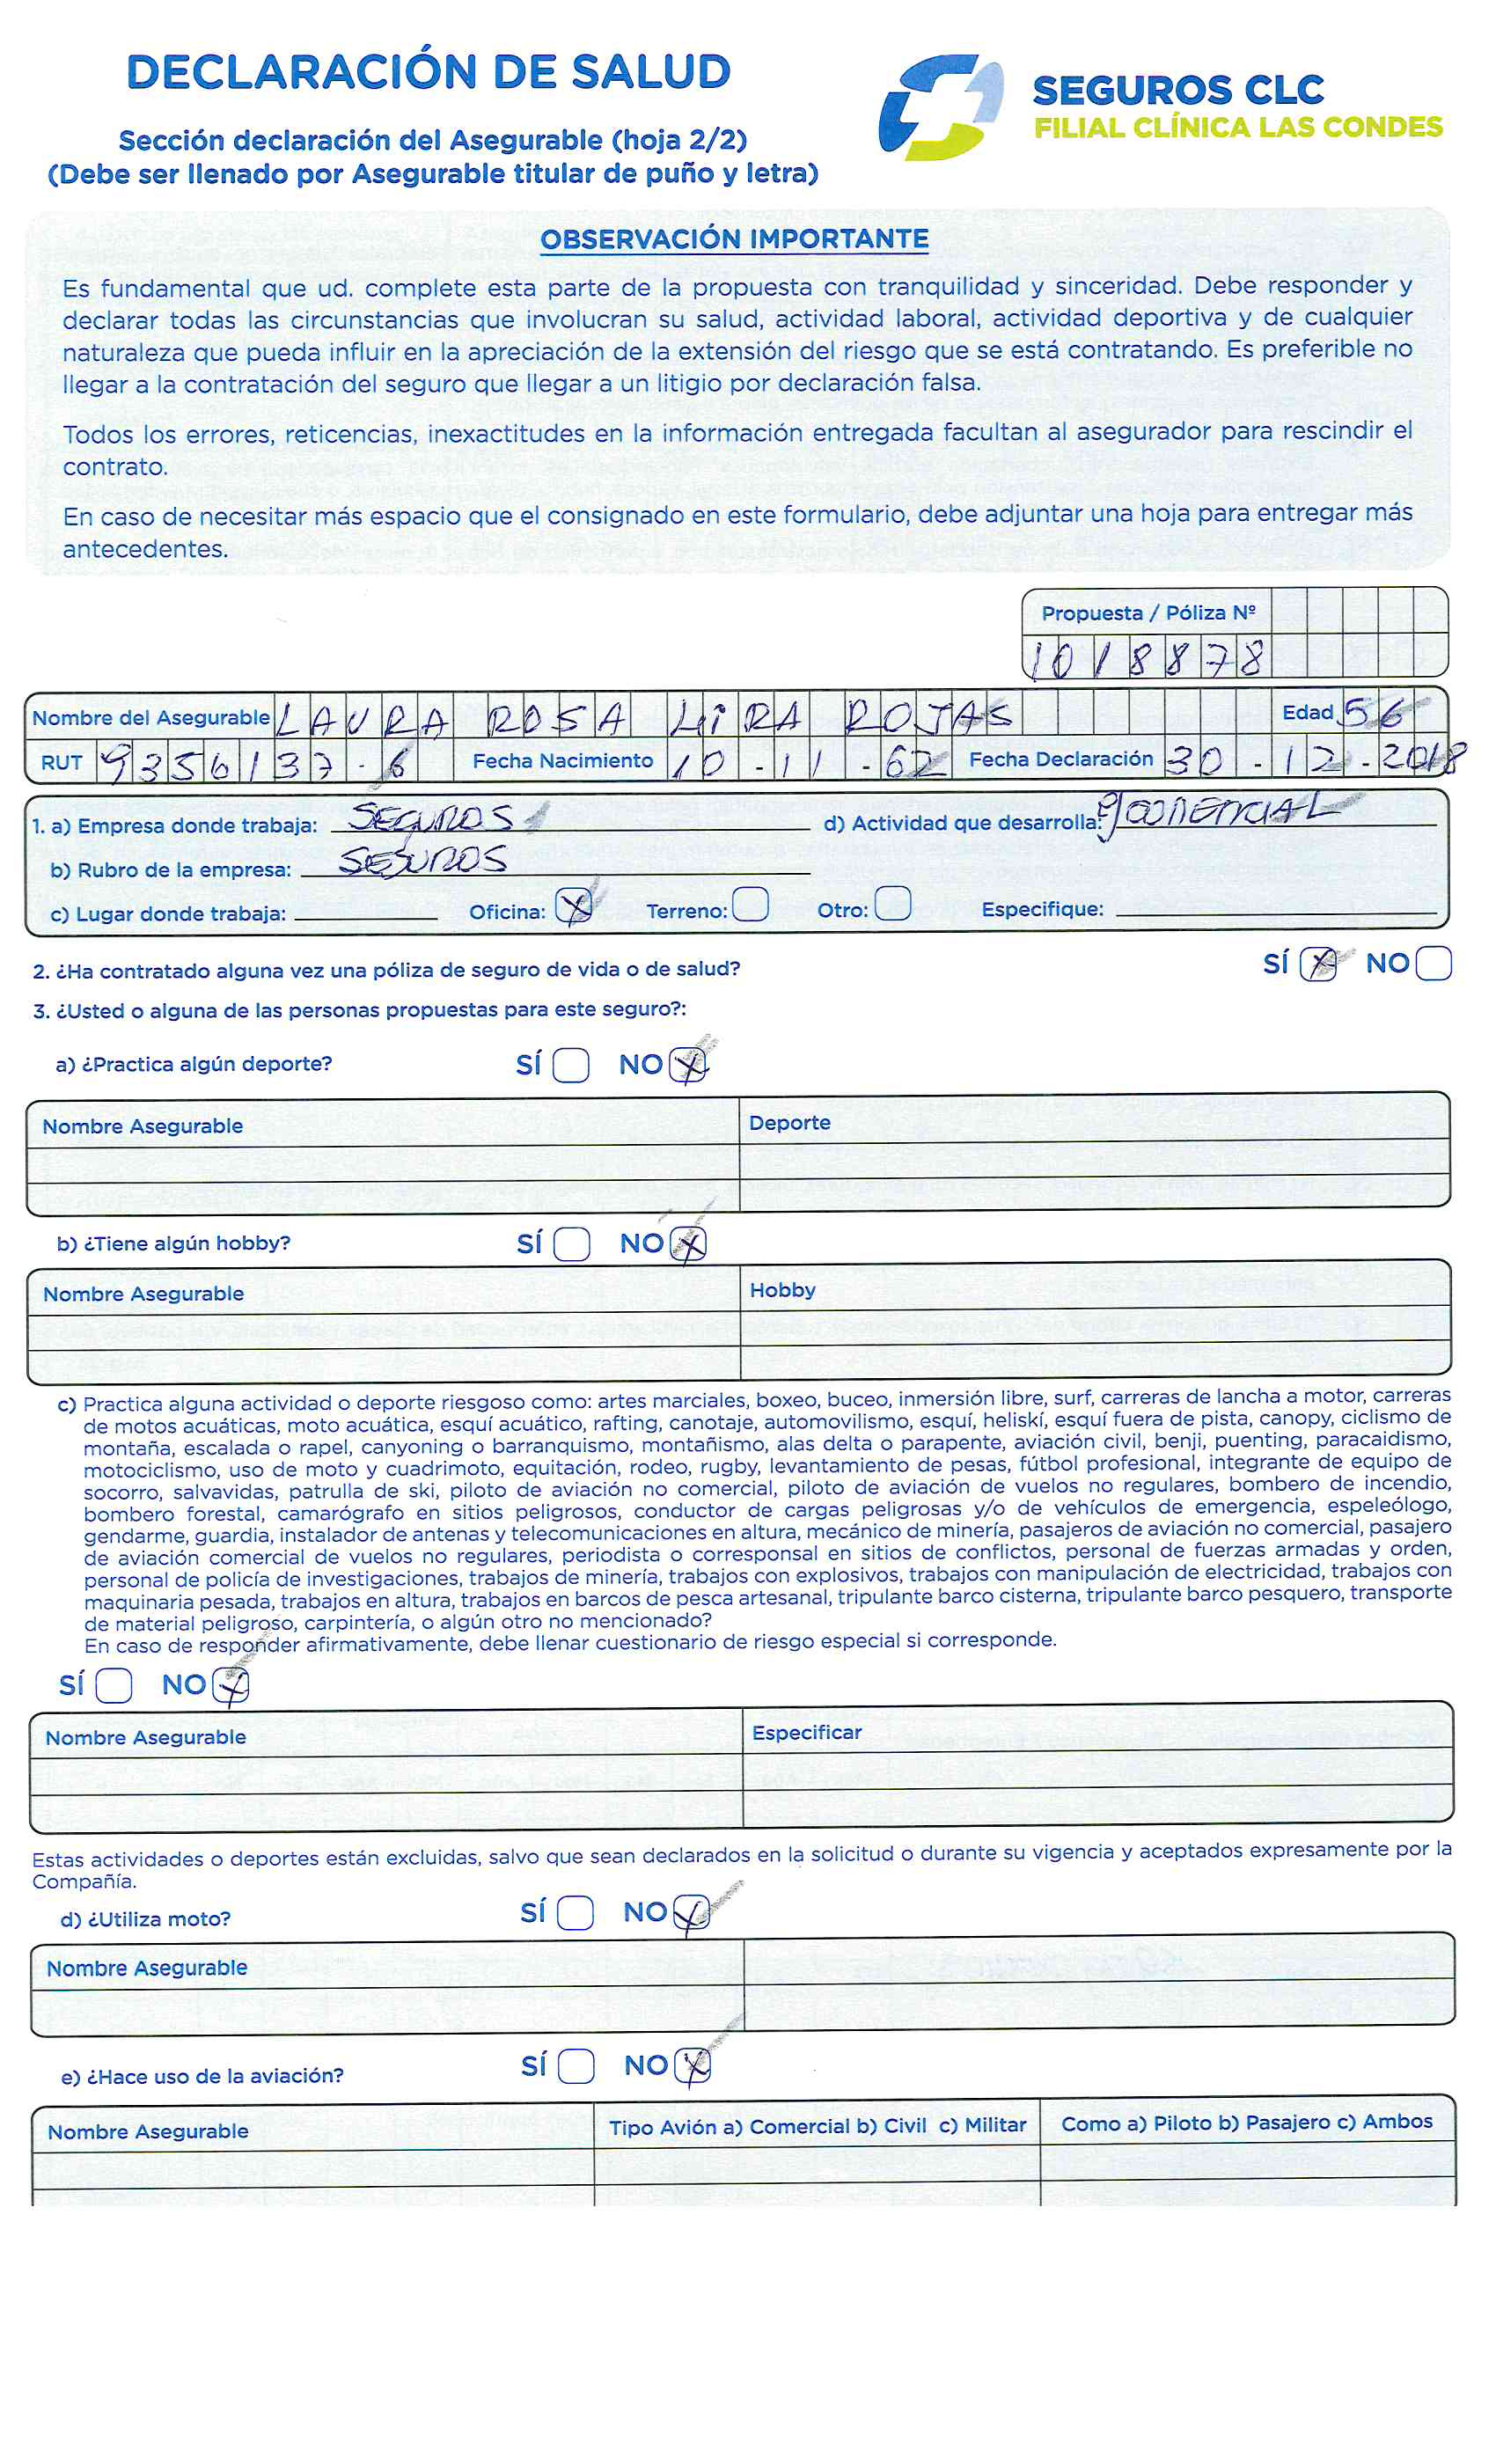 DECLARACIÓN DE SALUD
SEGUROS CLC
FILIAL CLÍNICA LAS CONDES
Sección declaración del Asegurable (hoja 2/2)
(Debe ser llenado por Asegurable titular de puño y letra)
OBSERVACIÓN IMPORTANTE
Es fundamental que ud. complete esta parte de la propuesta con tranquilidad y sinceridad. Debe responder y
declarar todas las circunstancias que involucran su salud, actividad laboral, actividad deportiva y de cualquier
naturaleza que pueda influir en la apreciación de la extensión del riesgo que se está contratando. Es preferible no
llegar a la contratación del seguro que llegar a un litigio por declaración falsa.
Todos los errores, reticencias, inexactitudes en la información entregada facultan al asegurador para rescindir el
contrato.
En caso de necesitar más espacio que el consignado en este formulario, debe adjuntar una hoja para entregar más
antecedentes.
Propuesta / Póliza Nº
1018878
Nombre del Asegurable LAURA ROSA LIRA ROJAS Edad 56
RUT 9356137-6 Fecha Nacimiento 10-11-62 Fecha Declaración 30-12-2018
1. a) Empresa donde trabaja: SEGUROS d) Actividad que desarrolla:
b) Rubro de la empresa: SEGUROS
c) Lugar donde trabaja: Oficina: X Terreno: Otro: Especifique:
2. ¿Ha contratado alguna vez una póliza de seguro de vida o de salud? SÍ X NO
3. ¿Usted o alguna de las personas propuestas para este seguro?:
a) ¿Practica algún deporte? SÍ NO X
Nombre Asegurable Deporte
b) ¿Tiene algún hobby? SÍ NO X
Nombre Asegurable Hobby
c) Practica alguna actividad o deporte riesgoso como: artes marciales, boxeo, buceo, inmersión libre, surf, carreras de lancha a motor, carreras
de motos acuáticas, moto acuática, esquí acuático, rafting, canotaje, automovilismo, esquí, heliskí, esquí fuera de pista, canopy, ciclismo de
montaña, escalada o rapel, canyoning o barranquismo, montañismo, alas delta o parapente, aviación civil, benji, puenting, paracaidismo,
motociclismo, uso de moto y cuadrimoto, equitación, rodeo, rugby, levantamiento de pesas, fútbol profesional, integrante de equipo de
socorro, salvavidas, patrulla de ski, piloto de aviación no comercial, piloto de aviación de vuelos no regulares, bombero de incendio,
bombero forestal, camarógrafo en sitios peligrosos, conductor de cargas peligrosas y/o de vehículos de emergencia, espeleólogo,
gendarme, guardia, instalador de antenas y telecomunicaciones en altura, mecánico de minería, pasajeros de aviación no comercial, pasajero
de aviación comercial de vuelos no regulares, periodista o corresponsal en sitios de conflictos, personal de fuerzas armadas y orden,
personal de policía de investigaciones, trabajos de minería, trabajos con explosivos, trabajos con manipulación de electricidad, trabajos con
maquinaria pesada, trabajos en altura, trabajos en barcos de pesca artesanal, tripulante barco cisterna, tripulante barco pesquero, transporte
de material peligroso, carpintería, o algún otro no mencionado?
En caso de responder afirmativamente, debe llenar cuestionario de riesgo especial si corresponde.
SÍ NO X
Nombre Asegurable Especificar
Estas actividades o deportes están excluidas, salvo que sean declarados en la solicitud o durante su vigencia y aceptados expresamente por la
Compañía.
d) ¿Utiliza moto? SÍ NO X
Nombre Asegurable
e) ¿Hace uso de la aviación? SÍ NO X
Nombre Asegurable Tipo Avión a) Comercial b) Civil c) Militar Como a) Piloto b) Pasajero c) Ambos